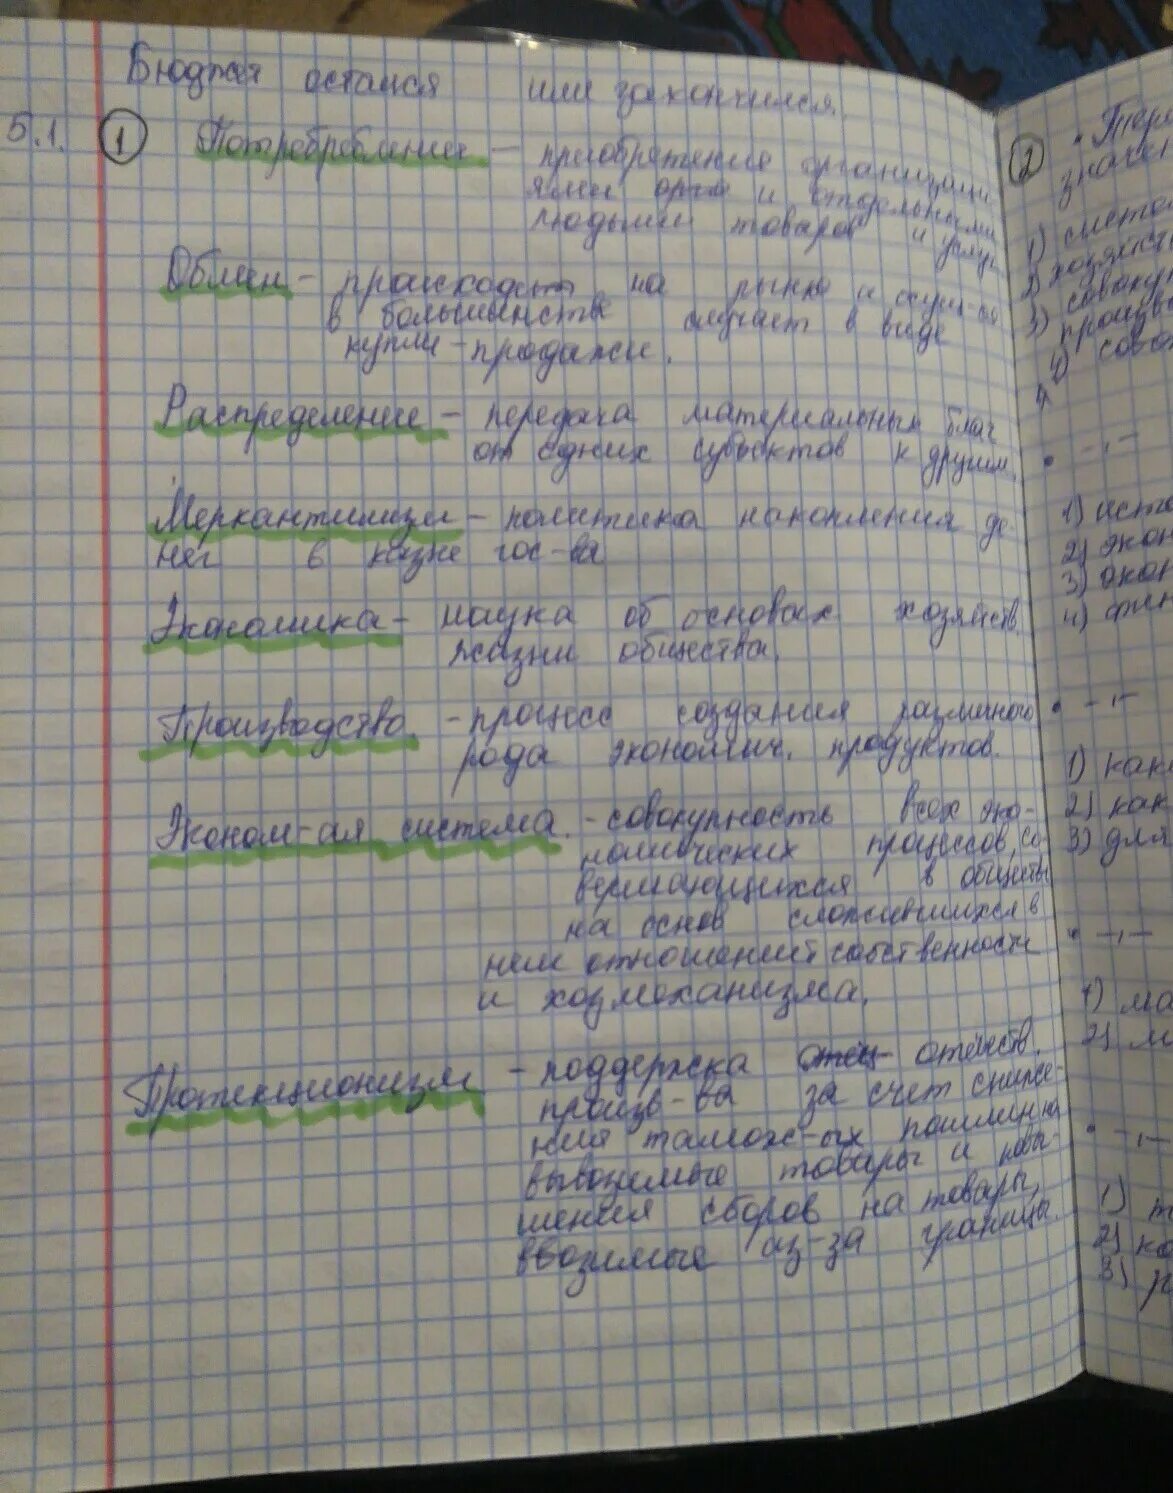 Бюджет остался или закончился.
5.1. 1 Потребление – приобретение организаци
ями орга и отдельными
людьми товаров и услуг
Обмен – происходит на рынке и осущ-ся
в большинстве случает в виде
купли-продажи.
Распределение – передача материальным благ
от одних субъектов к другим.
Меркантилизм – политика накопления де
нег в казне гос-ва
Экономика – наука об основах хозяйств.
жизни общества.
Производство – процесс создания различного
рода экономич. продуктов.
Эконом-ая система. – совокупность всех эко-
номических процессов, со
вершающихся в обществе
на основ сложившихся в
нем отношений собственности
и хозмеханизма.
Протекционизм – поддержка отеч отечеств.
произв-ва за счет сниже-
ния тамож-ых пошлин на
вывозимые товары и повы-
шения сборов на товары,
ввозимые из-за границы.
2
значен
1) систем
2) хозяйств
3) совокуп
произв
4) сово
• –,,–
1) исто
2) экон
3) экон
4)
• –,,–
1) как
2) как
3) для
• –,,–
1) ма
2) м
• –,,–
1) т
2) ко
3) р